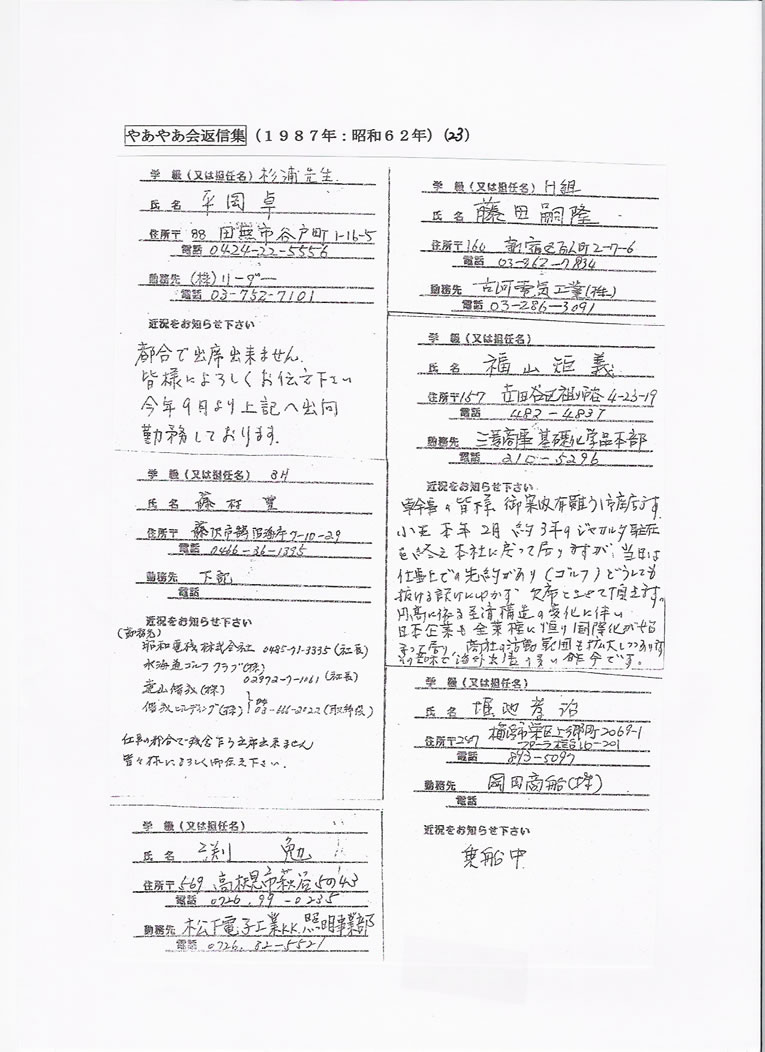 やあやあ会返信集（１９８７年：昭和６２年）(23)
学 級（又は担任名）杉浦先生
氏 名 平岡 卓
住所〒188 田無市谷戸町 1-16-5
電話 0424-22-5556
勤務先 (株)リーダー
電話 03-752-7101
近況をお知らせ下さい
都合で出席出来ません.
皆様によろしくお伝え下さい
今年9月より上記へ出向
勤務しております.
学 級（又は担任名） 3H
氏 名 藤村
住所〒 藤沢市鵠沼海岸 7-10-29
電話 0466-36-1395
勤務先 下記
電話
近況をお知らせ下さい
(勤務先)
昭和電機株式会社 0485-71-3335 (社長)
氷海道ゴルフクラブ(株)
02972-7-1061 (社長)
(株)
ビルディング(株) 03-666-2022 (取締役)
仕事の都合で残念乍ら出席出来ません
皆々様によろしく御伝え下さい.
学 級（又は担任名）
氏 名 渕 勉
住所〒569 高槻市萩谷5の43
電話 0726.99-0235
勤務先 松下電子工業K.K.照明事業部
電話 0726.82-5521
学 級（又は担任名）H組
氏 名 藤田嗣隆
住所〒160 新宿区百人町2-7-6
電話 03-362-7834
勤務先 古河電気工業(株)
電話 03-286-3091
学 級（又は担任名）
氏 名 福山矩義
住所〒157 世田谷区祖師谷 4-23-19
電話 482-4837
勤務先 三菱商事 基礎化学品本部
電話 210-5296
近況をお知らせ下さい
幹事の皆様 御案内有難う御座居ます.
小生 本年2月 約3年のジャカルタ駐在
を終え本社に戻って居りますが、当日は
仕事上での先約があり(ゴルフ)どうしても
抜ける訳にゆかず 欠席とさせて頂きます。
円高に係る経済構造の変化に伴い
日本企業も全業種に亘り国際化がせま
られて居り 商社の活動範囲も拡大しつつあります
その意味で海外出張の多い昨今です。
学 級（又は担任名）
氏 名 堀池
住所〒247 横浜市栄区上郷町2069-1
10-201
電話 893-5097
勤務先 岡田商船(株)
電話
近況をお知らせ下さい
乗船中